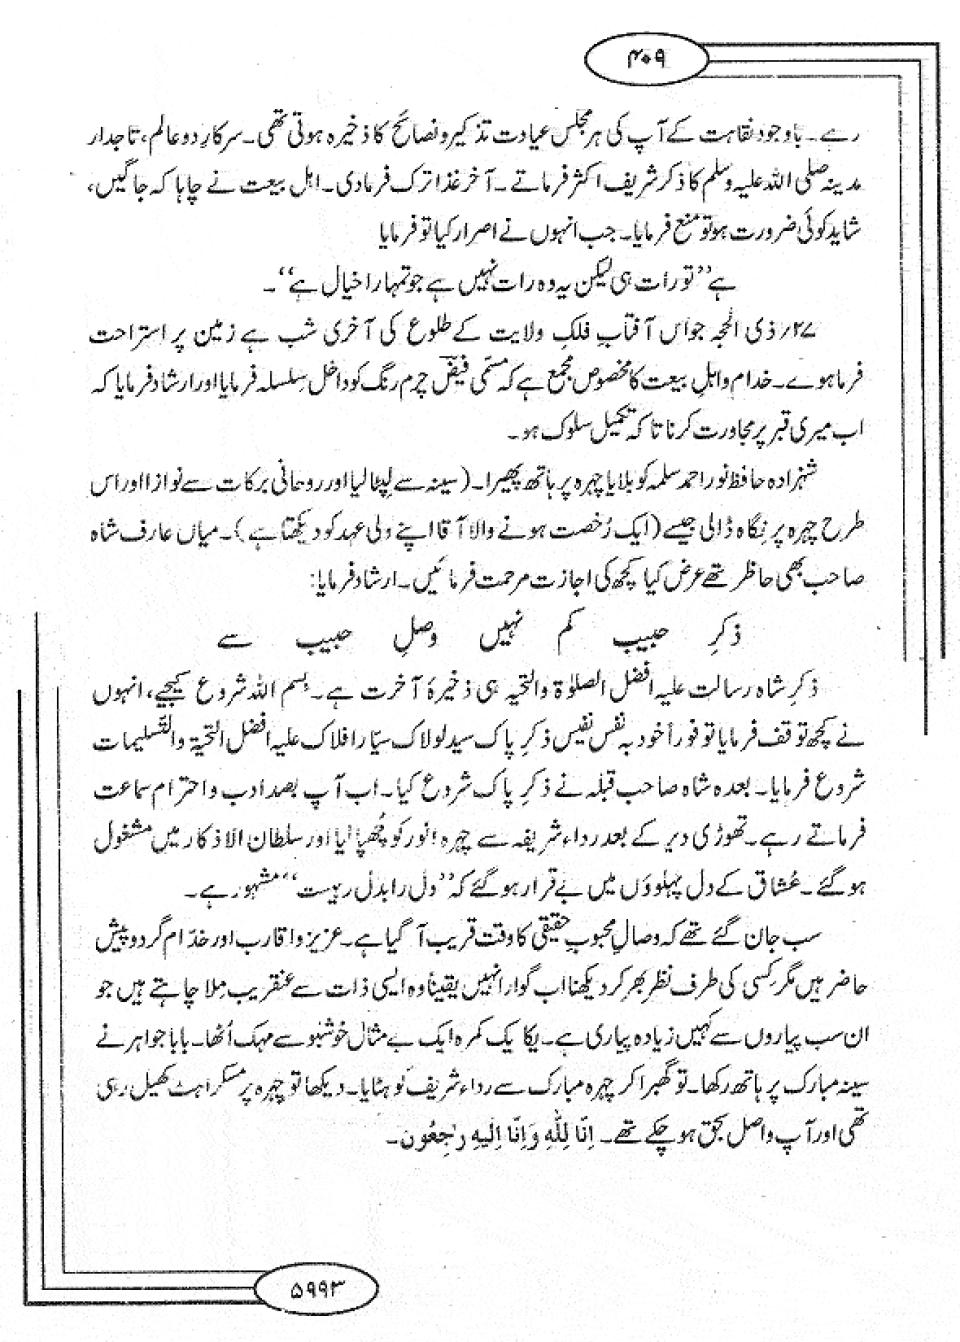 ۴۰۹
رہے۔ باوجود نقاہت کے آپ کی ہر مجلس عیادت تذکیر و نصائح کا ذخیرہ ہوتی تھی۔ سرکارِ دو عالم، تاجدار
مدینہ صلی اللہ علیہ وسلم کا ذکر شریف اکثر فرماتے۔ آخر غذا ترک فرما دی۔ اہل بیعت نے چاہا کہ جاگیں،
شاید کوئی ضرورت ہو تو منع فرمایا۔ جب انہوں نے اصرار کیا تو فرمایا
ہے ’’تو رات ہی لیکن یہ وہ رات نہیں ہے جو تمہارا خیال ہے‘‘۔
۲۷؍ ذی الحجہ جو اس آفتابِ فلکِ ولایت کے طلوع کی آخری شب ہے زمین پر استراحت
فرما ہوے۔ خدام و اہلِ بیعت کا مخصوص مجمع ہے کہ مسمّی فیضؔ چرم رنگ کو داخل سِلسلہ فرمایا اور ارشاد فرمایا کہ
اب میری قبر پر مجاورت کرنا تا کہ تکمیل سلوک ہو۔
شہزادہ حافظ نور احمد سلمہ کو بلایا چہرہ پر ہاتھ پھیرا۔ (سینہ سے لپٹا لیا اور روحانی برکات سے نوازا اور اس
طرح چہرہ پر نِگاہ ڈالی جیسے (ایک رُخصت ہونے والا آقا اپنے ولی عہد کو دیکھتا ہے)۔ میاں عارف شاہ
صاحب بھی حاظر تھے عرض کیا کچھ کی اجازت مرحمت فرمائیں۔ ارشاد فرمایا:
ذکرِ حبیب کم نہیں وصلِ حبیب سے
ذکرِ شاہ رسالت علیہ افضل الصلوٰۃ والتحیہ ہی ذخیرۂ آخرت ہے۔ بِسم اللہ شروع کیجیے، انہوں
نے کچھ توقف فرمایا تو فوراً خود بہ نفس نفیس ذکرِ پاک سید لولاک سیّارِ افلاک علیہ افضل التحیۃ والتسلیمات
شروع فرمایا۔ بعدہ شاہ صاحب قبلہ نے ذکرِ پاک شروع کیا۔ اب آپ بصد ادب و احترام سماعت
فرماتے رہے۔ تھوڑی دیر کے بعد رداء شریفہ سے چہرہ انور کو چُھپا لیا اور سلطان الاذکار میں مشغول
ہو گئے۔ عُشاق کے دل پہلوؤں میں بے قرار ہو گئے کہ ’’دل را بدل رہیست‘‘ مشہور ہے۔
سب جان گئے تھے کہ وصالِ محبوبِ حقیقی کا وقت قریب آ گیا ہے۔ عزیز و اقارب اور خدّام گرد و پیش
حاضر ہیں مگر کِسی کی طرف نظر بھر کر دیکھنا اب گوارا نہیں یقیناً وہ ایسی ذات سے عنقریب مِلا چاہتے ہیں جو
ان سب پیاروں سے کہیں زیادہ پیاری ہے۔ یکایک کمرہ ایک بے مثال خوشبو سے مہک اُٹھا۔ بابا جواہر نے
سینہ مبارک پر ہاتھ رکھا۔ تو گھبرا کر چہرہ مبارک سے رداء شریف کو ہٹایا۔ دیکھا تو چہرہ پر مسکراہٹ کھیل رہی
تھی اور آپ واصل بحق ہو چکے تھے۔ اِنَّا لِلّٰہِ وَاِنَّا اِلَیہِ رٰجِعُون۔
۵۹۹۳